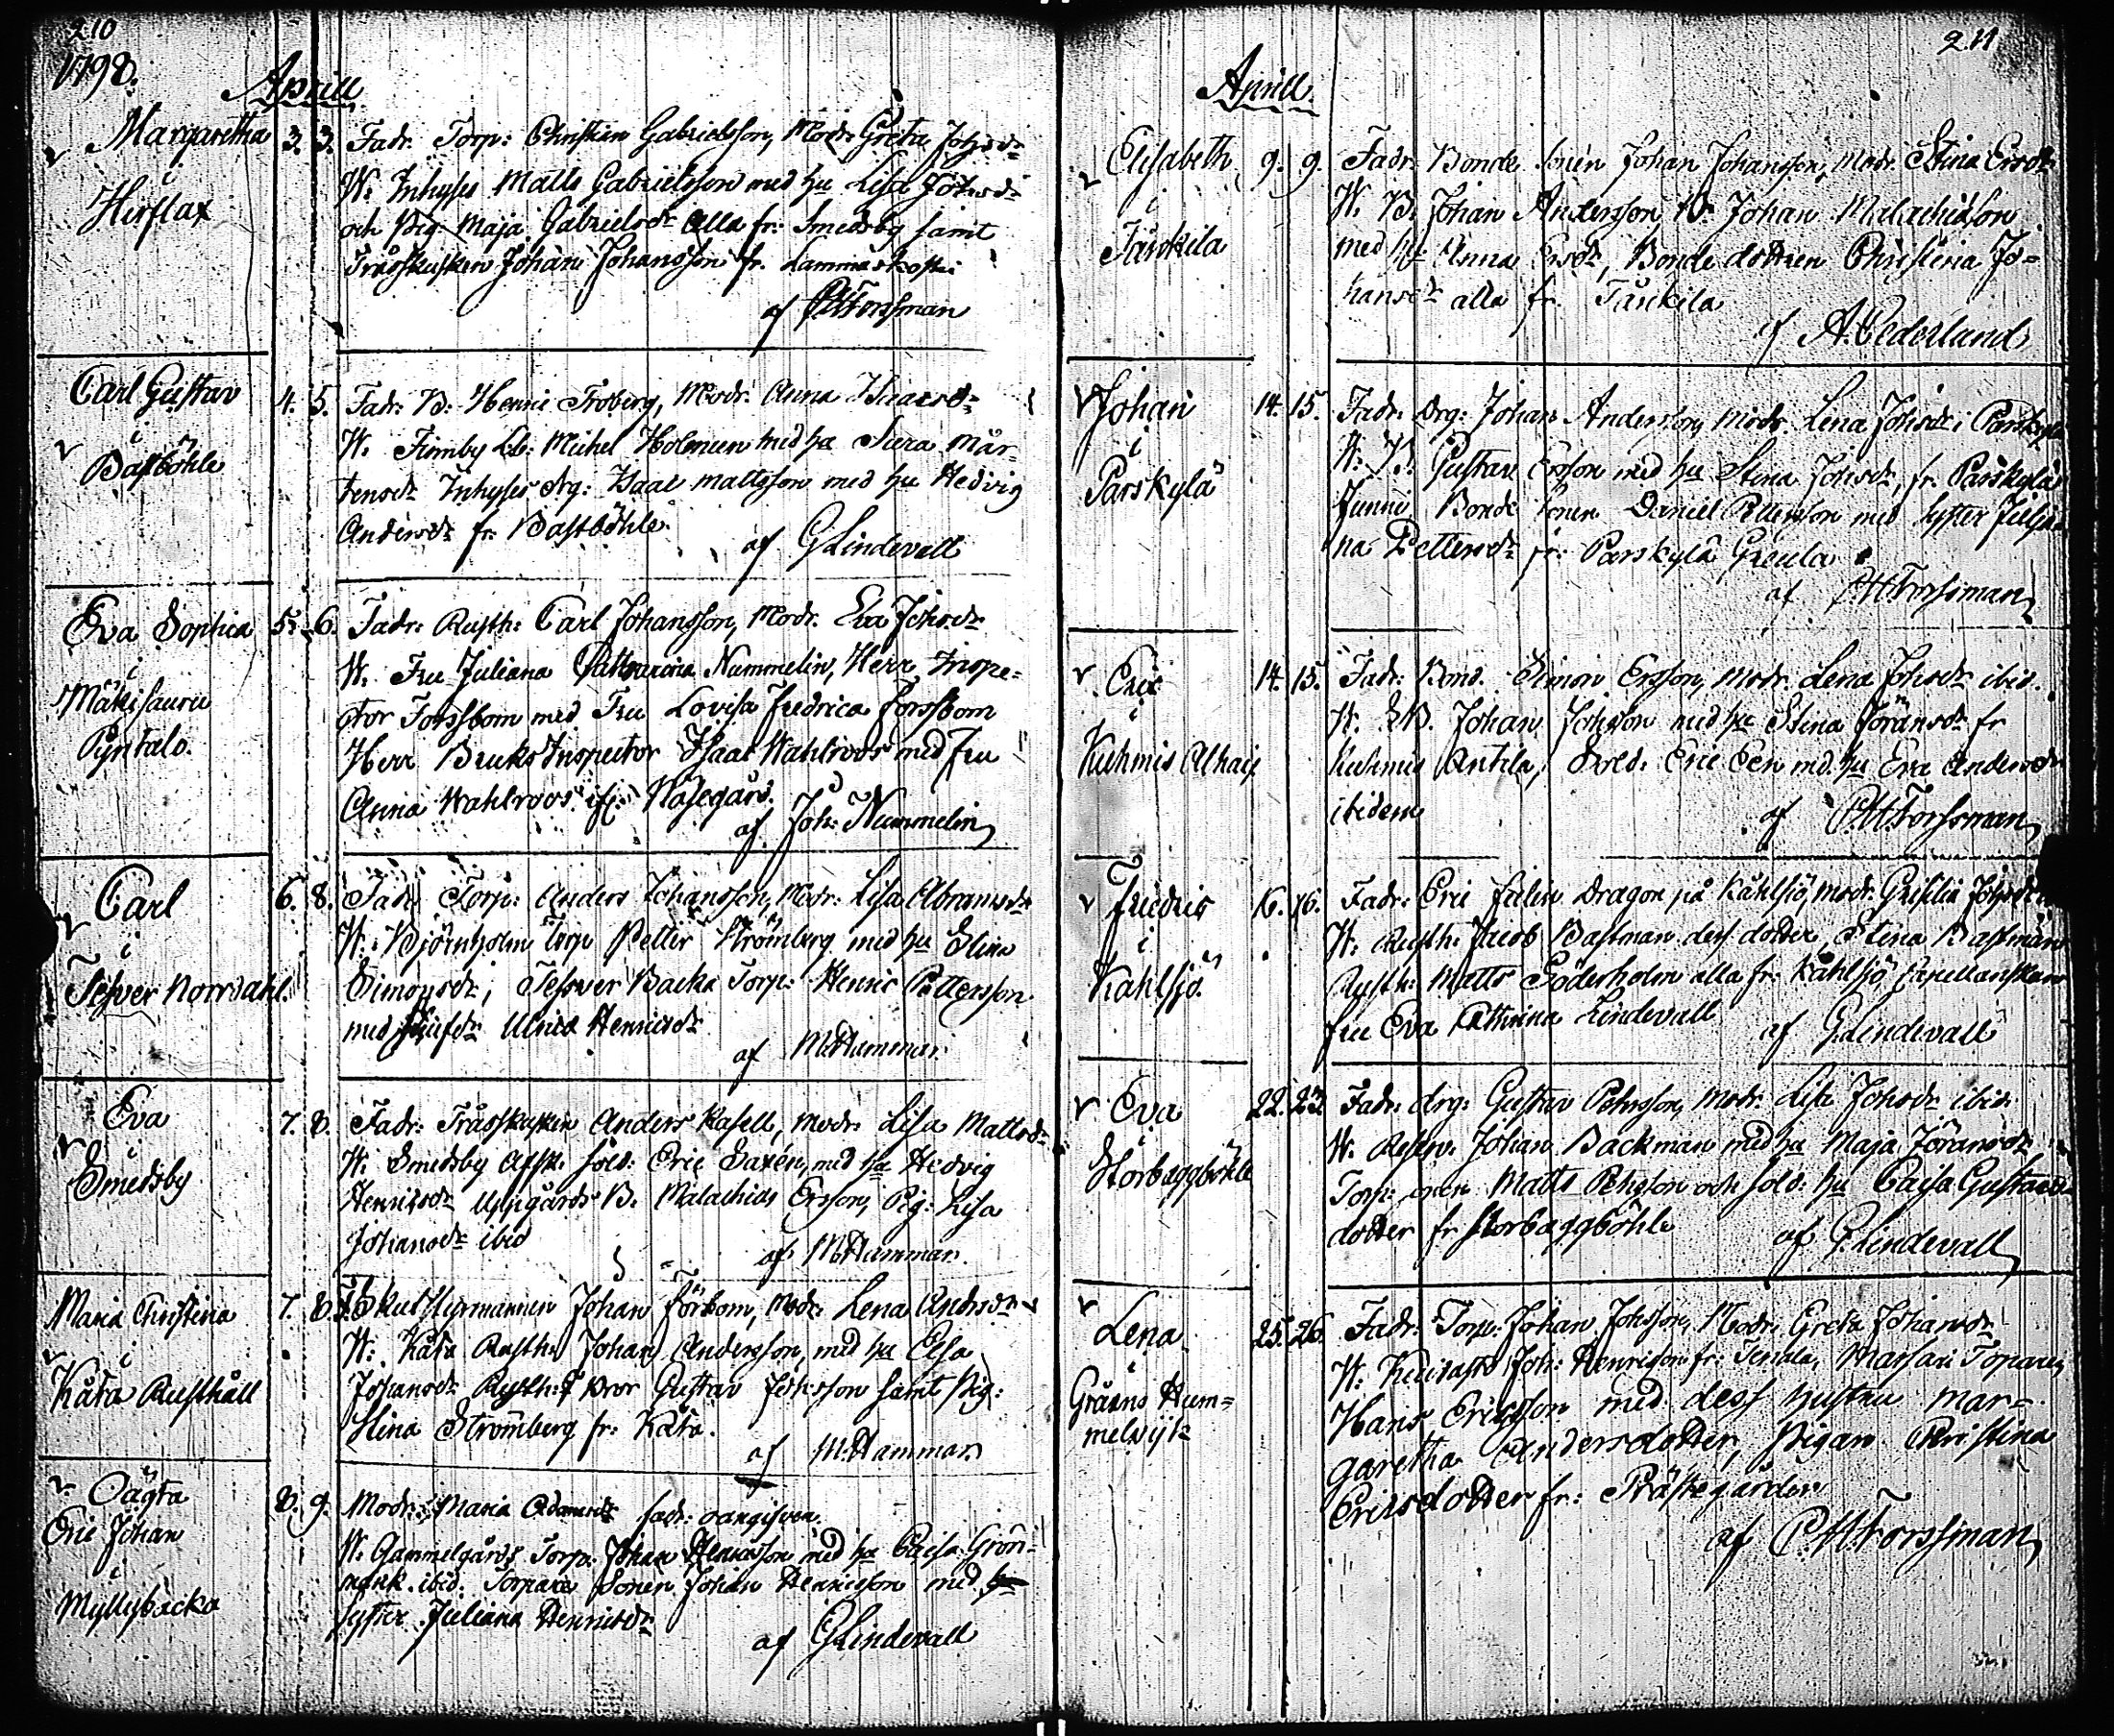 210
1798.
Aprill
Margaretha 3. 3. Fadr. Torp: Christian Gabrielsson, Modr. Greta Johsdr
i W. Inhyses Matts Gabrielsson med hu Lisa Johsdr
Hirflax och Pig. Maja Gabrielsdr alla fr. Smedsby samt
Johan Johansson fr. Lammaskoski
af PMForssman
Carl Gustav 4. 5. Fadr. B. Henric Froberg, Modr. Anna Isacsdr
i W. Finnby Lb: Michel Holmen med hu Sara Mår-
Bastböhle tensdr Inhyses drg: Isaac Mattsson med hu Hedvig
Andersdr fr. Bastböhle
af GLindevall
Eva Sophia 5. 6. Fadr. Rusth: Carl Johansson, Modr. Eva Johsdr
i W. Fru Juliana Catharina Nummelin, Herr Inspe-
Mäkisauru ctor Forssbom med Fru Lovisa Fredrica Forssbom
Pyntalo. Herr Bruks Inspector Isaac Wahlroos med Fru
Anna Wahlroos
af Joh: Nummelin
Carl 6. 8. Fadr. Torp: Anders Johansson, Modr: Lisa Abramsdr
i W. Björnholm Torp Petter Strömberg med hu Stina
Tesver Norrdahl. Simonsdr; Tesver Backa Torp: Henric Pettersson
med Ulrica Henricsdr
af MHammar
Eva 7. 8. Fadr: Anders Kasell, modr. Lisa Mattsdr
i W. Smedsby sold: Eric Saxén, med hu Hedvig
Smedsby Henricsdr Uppgårds B. Malachias Ersson, Pig: Lisa
Johansdr ibid
af MHammar.
Maria Christina 7. 8. Johan Förbom, Modr. Lena Andersdr
i W: Kåta Rusth: Johan Andersson, med hu Elsa
Kåta Rusthåll Johansdr Rusth: Gustav Johsson samt Pig:
Stina Strömberg fr: Kåta.
af MHammar
Oägta 8. 9. Modr: Maria Adamsdr fadr: oangifven.
Eric Johan W. Gammelgårds Torp: Johan Henricsson med hu Caisa Grön-
i mark. ibid. Torpare Sonen Johan Henricsson med
Myllybacka syster Juliana Henricsdr
af GLindevall
211
Aprill.
Elisabeth 9. 9. Fadr. Bonde sonen Johan Johansson, modr. Stina Ersdr
i W. B. Johan Andersson B. Johan Malachiasson
Täuckila med hu Anna Ersdr, Bonde dottren Christina Jo-
hansdr alla fr. Täuckila
af A. Cederlund
Johan 14. 15. Fadr. Drg: Johan Andersson, modr. Lena Johsdr i Parskylä
i W. B. Gustav Ersson med hu Stina Johsdr, fr. Parskylä
Parskylä Junni, Bonde sonen Daniel Pettersson med syster Julia-
na Pettersdr fr. Parskylä Greula
af PMForssman
Eric 14. 15. Fadr. Bond. Simon Ersson, modr. Lena Johsdr ibid.
i W. B. Johan Johsson med hu Stina Jöransdr fr
Kuhmis Alhais Kuhmis Antila, Sold: Eric Pen med hu Eva Andersdr
ibidem
af PMForssman
Fredric 16. 16. Fadr: Eric Felin Dragon på Kåhlsjö, modr.
i W. Rusth: Jacob Bastman dess dotter Stina Bastman
Kåhlsjö Rusth: Matts Söderholm alla fr. Kåhlsjö,
fru Eva Cathrina Lindevall
af GLindevall
Eva 22. 23. Fadr: drg: Gustav Pehrsson, modr. Lisa Johsdr ibid.
i W. Johan Backman med hu Maja Jöransdr
Storbaggböhle Torp: Matts Pehrsson och sold: hu Caisa Gustavs-
dotter fr Storbaggböhle
af GLindevall
Lena 25. 26. Fadr. Torp: Johan Johsson, Modr. Greta Johansdr
i W. Joh: Henricsson fr: Massari Toparen
Gråsens Hum- Hans Ericsson med dess hustru Mar-
melsvijk garetha Andersdotter, Pigan Christina
Ericsdotter fr: Prästegården
af PMForssman